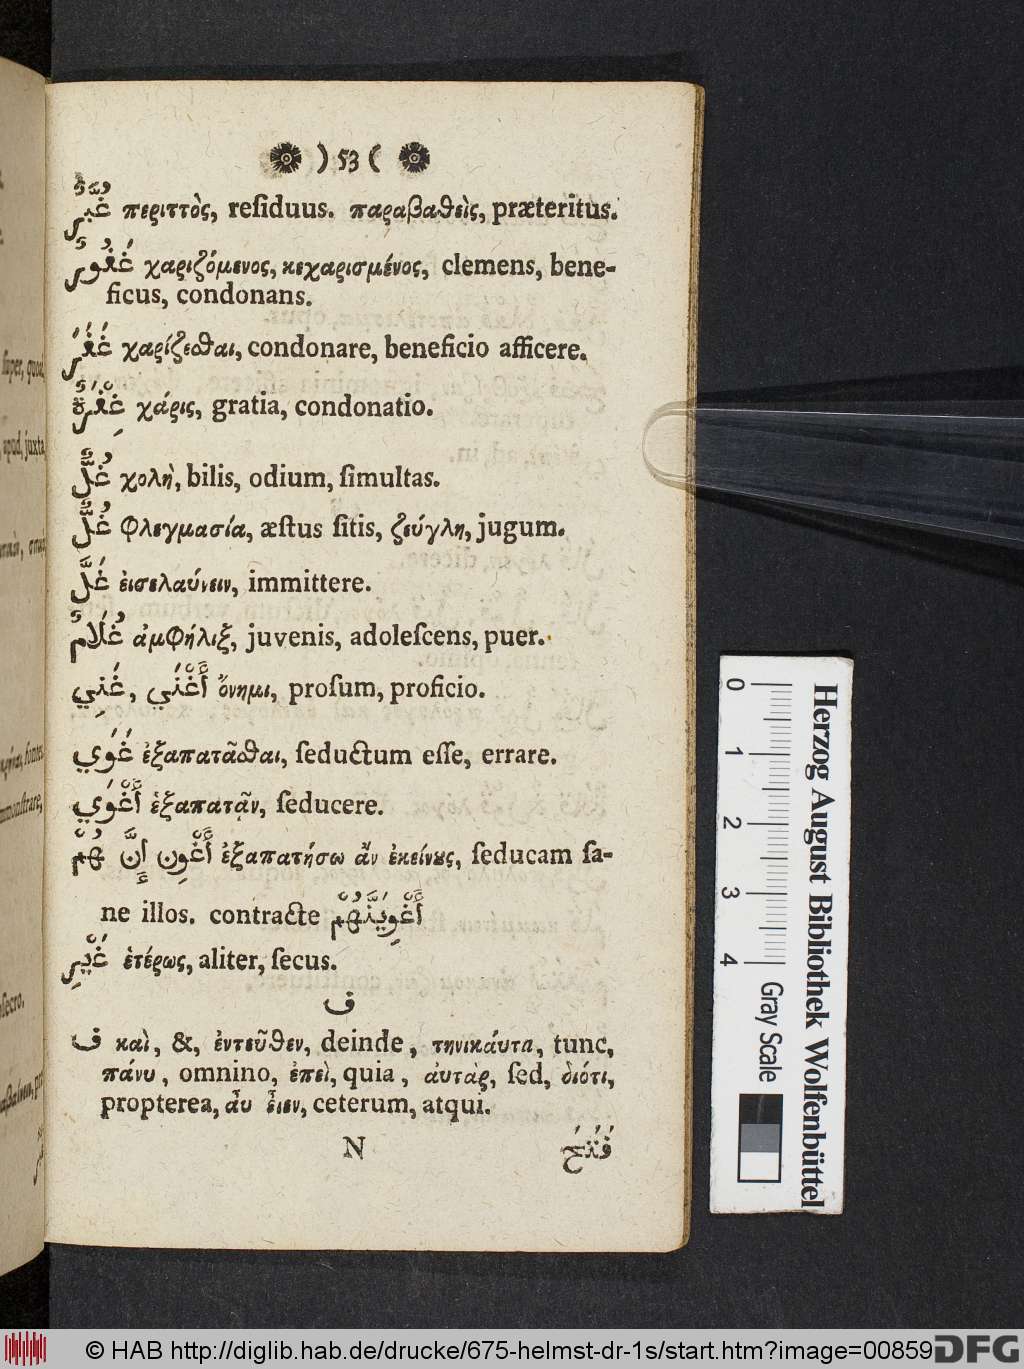 ) 53 (
غُبَّرٌ περιττὸς, reſiduus. παραβαθεὶς, præteritus.
غَفُورٌ χαριζόμενος, κεχαρισμένος, clemens, bene-
ficus, condonans.
غَفَرَ χαρίζεσθαι, condonare, beneficio afficere.
غِفْرَةٌ χάρις, gratia, condonatio.
غُلٌّ χολὴ, bilis, odium, ſimultas.
غُلٌّ φλεγμασία, æſtus ſitis, ζεύγλη, jugum.
غَلَّ ἐισελαύνειν, immittere.
غُلَامٌ ἀμφήλιξ, juvenis, adoleſcens, puer.
غَنِي, أَغْنَي ὄνημι, proſum, proficio.
غَوَي ἐξαπατᾶσθαι, ſeductum eſſe, errare.
أَغْوَي ἐξαπατᾷν, ſeducere.
أَغْوِن إِنَّ هُمْ ἐξαπατήσω ἂν ἐκείνους, ſeducam ſa-
ne illos. contracte أَغْوِيَنَّهُمْ
غَيْرِ ἑτέρως, aliter, ſecus.
ف
ف καὶ, &, ἐντεῦθεν, deinde, τηνικάυτα, tunc,
πάνυ, omnino, ἐπεὶ, quia, ἀυτὰρ, ſed, διότι,
propterea, ἆυ εἶιεν, ceterum, atqui.
N فَتَحَ
ſuper, quoad
apud, juxta
0 1 2 3 4
Gray Scale
Herzog August Bibliothek Wolfenbüttel
© HAB http://diglib.hab.de/drucke/675-helmst-dr-1s/start.htm?image=00859
DFG